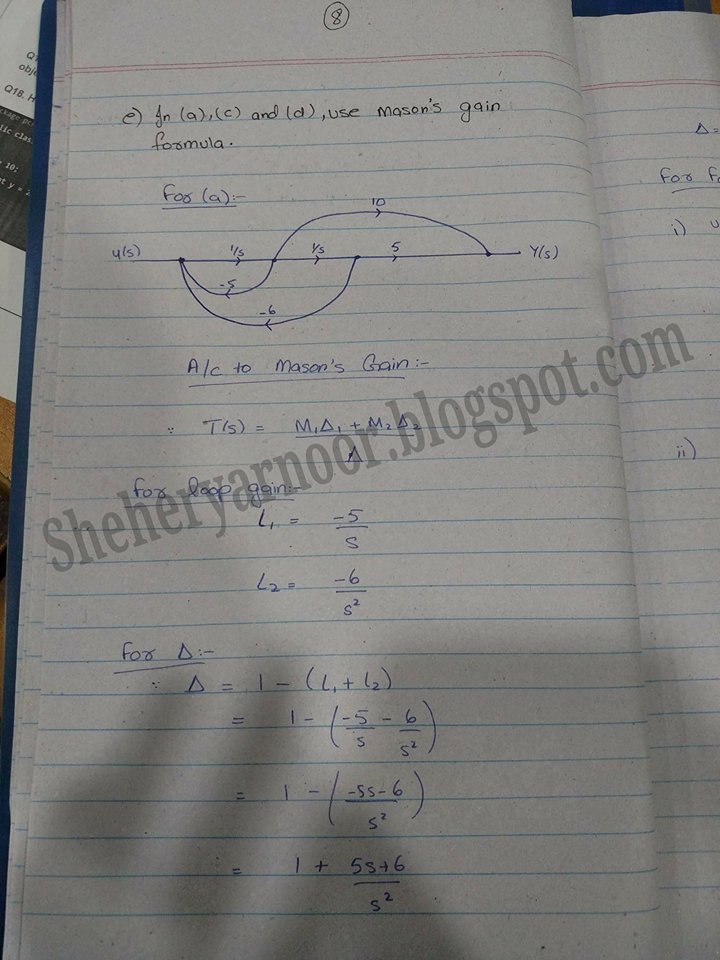 8
e) In (a), (c) and (d), use Mason's gain
formula.
For (a):-
10
U(s) 1/s 1/s 5 Y(s)
-5
-6
A/c to Mason's Gain:-
∵ T(s) = M₁Δ₁ + M₂Δ₂ / Δ
For loop gain:-
L₁ = -5 / s
L₂ = -6 / s²
For Δ:-
∵ Δ = 1 - (L₁ + L₂)
= 1 - (-5/s - 6/s²)
= 1 - (-5s-6 / s²)
= 1 + 5s+6 / s²
Sheheryarnoor.blogspot.com
Δ=
i)
ii)
Q18. H
10;